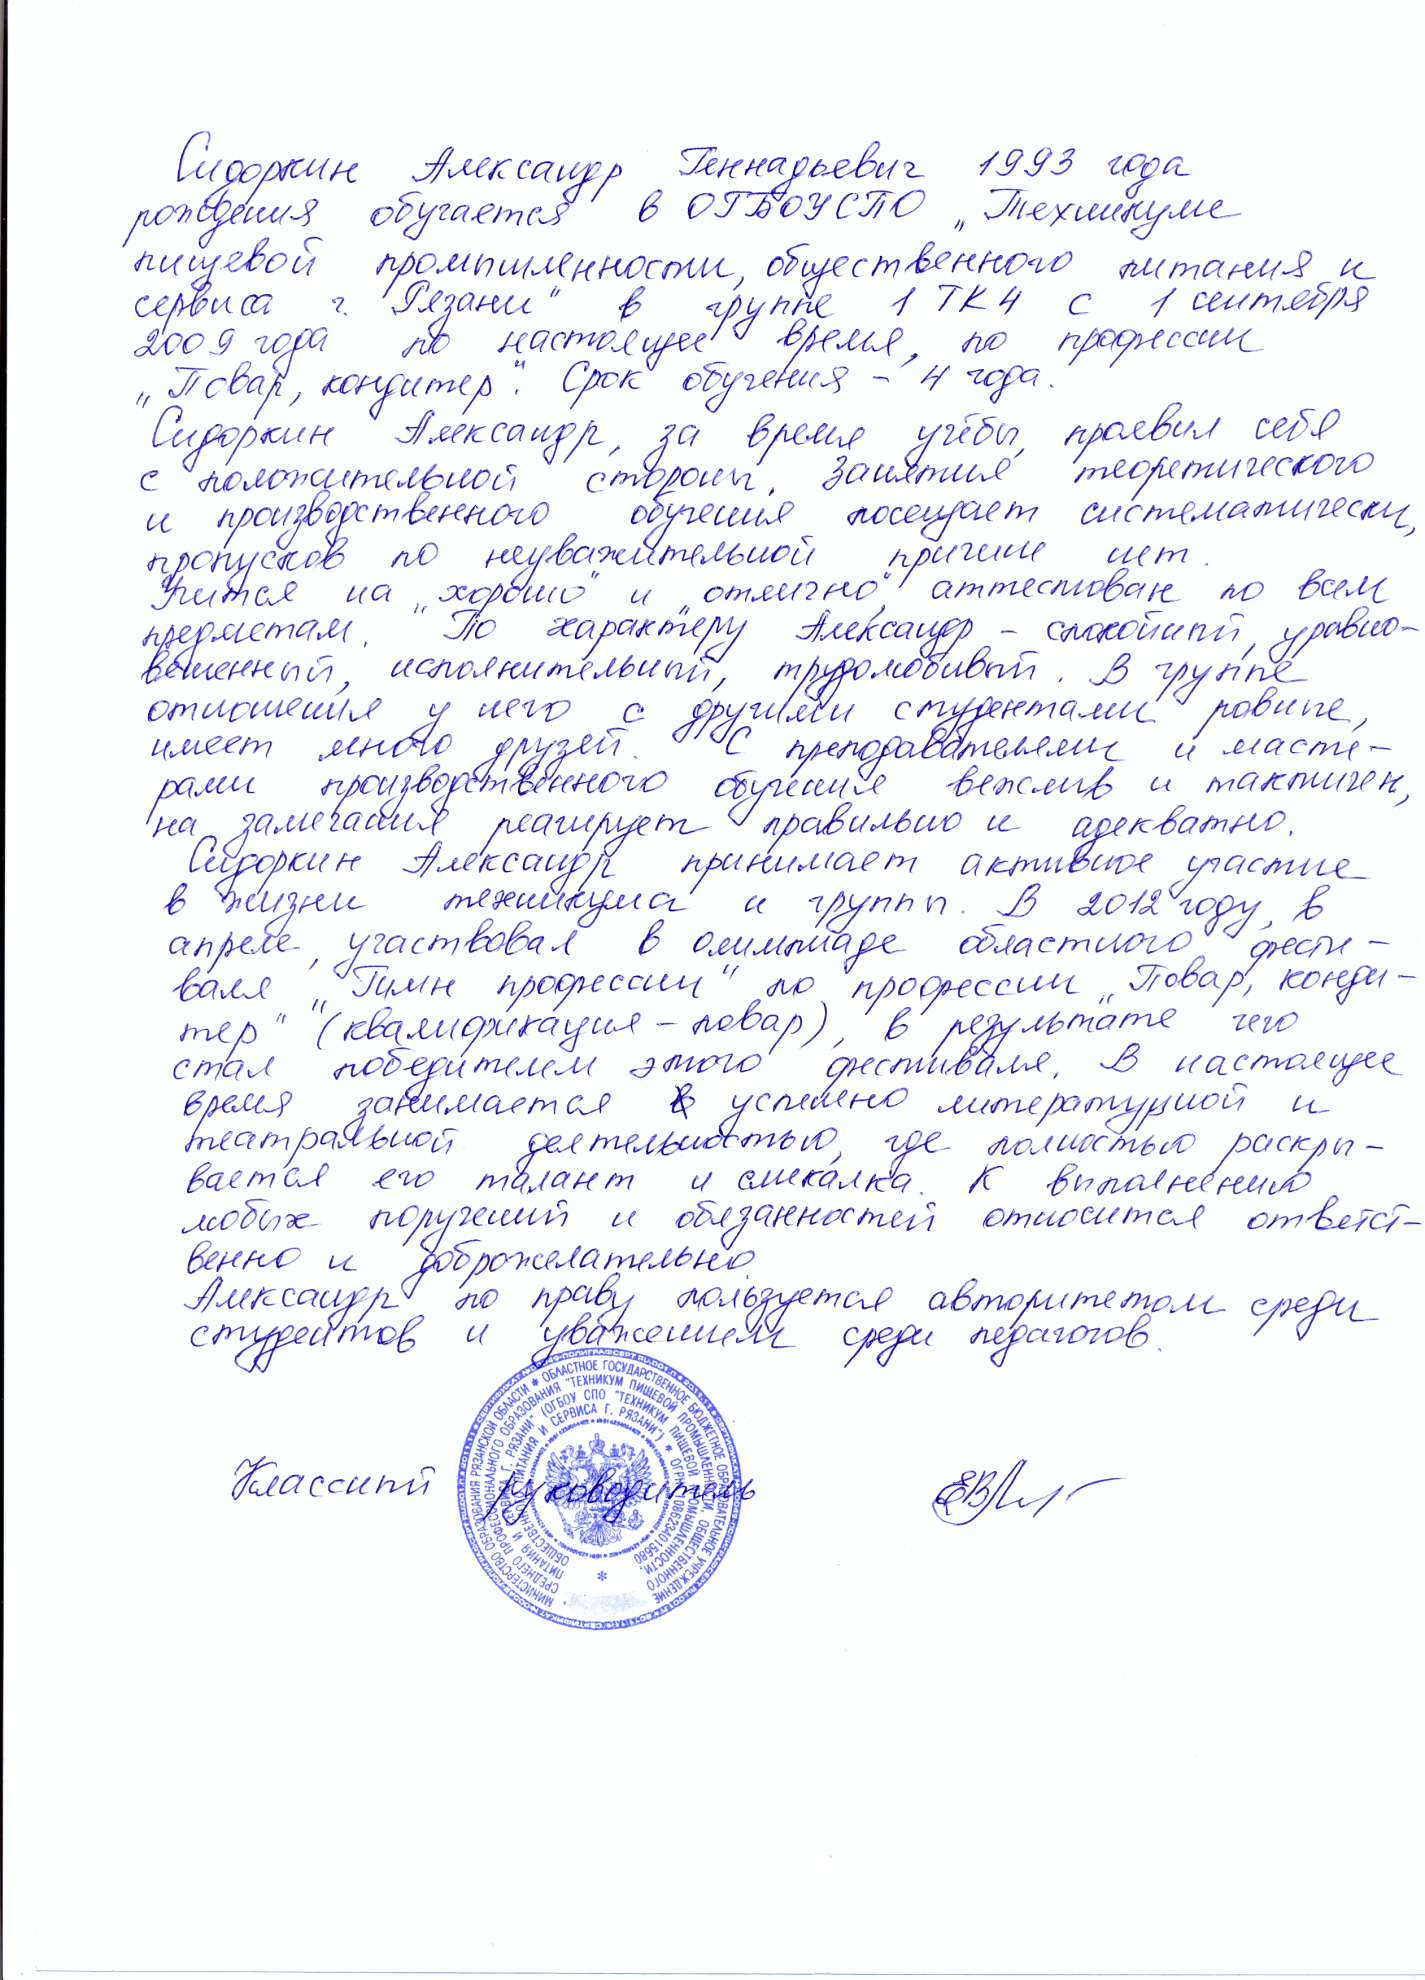 Сидоркин Александр Геннадьевич 1993 года
рождения обучается в ОГБОУСПО „Техникуме
пищевой промышленности, общественного питания и
сервиса г. Рязани" в группе 1 ТК 4 с 1 сентября
2009 года по настоящее время, по профессии
„Повар, кондитер". Срок обучения – 4 года.
Сидоркин Александр, за время учёбы, проявил себя
с положительной стороны. Занятия теоретического
и производственного обучения посещает систематически,
пропусков по неуважительной причине нет.
Учится на „хорошо" и „отлично", аттестован по всем
предметам. По характеру Александр – спокойный, уравно-
вешенный, исполнительный, трудолюбивый. В группе
отношения у него с другими студентами ровные,
имеет много друзей. С преподавателями и масте-
рами производственного обучения вежлив и тактичен,
на замечания реагирует правильно и адекватно.
Сидоркин Александр принимает активное участие
в жизни техникума и группы. В 2012 году, в
апреле, участвовал в олимпиаде областного фести-
валя „Гимн профессии" по профессии „Повар, конди-
тер" (квалификация – повар), в результате чего
стал победителем этого фестиваля. В настоящее
время занимается успешно литературной и
театральной деятельностью, где полностью раскры-
вается его талант и смекалка. К выполнению
любых поручений и обязанностей относится ответст-
венно и доброжелательно.
Александр по праву пользуется авторитетом среди
студентов и уважением среди педагогов.
Классный руководитель
МИНИСТЕРСТВО ОБРАЗОВАНИЯ РЯЗАНСКОЙ ОБЛАСТИ * ОБЛАСТНОЕ ГОСУДАРСТВЕННОЕ БЮДЖЕТНОЕ ОБРАЗОВАТЕЛЬНОЕ УЧРЕЖДЕНИЕ
СРЕДНЕГО ПРОФЕССИОНАЛЬНОГО ОБРАЗОВАНИЯ "ТЕХНИКУМ ПИЩЕВОЙ ПРОМЫШЛЕННОСТИ, ОБЩЕСТВЕННОГО
ПИТАНИЯ И СЕРВИСА Г. РЯЗАНИ" (ОГБОУ СПО "ТЕХНИКУМ ПИЩЕВОЙ ПРОМЫШЛЕННОСТИ,
ОБЩЕСТВЕННОГО ПИТАНИЯ И СЕРВИСА Г. РЯЗАНИ") * ОГРН 1086234015680